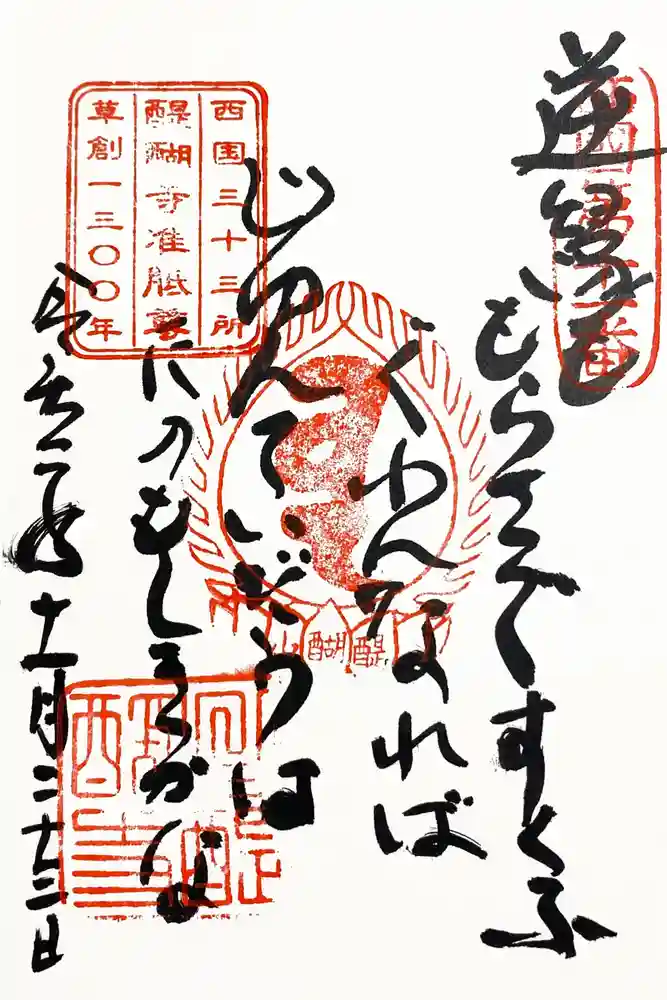 西国第十一番
逆縁も
もらさですくふ
ぐわんなれば
じゆんていどうは
たのもしきかな
令和二年十一月二十三日
西国三十三所
醍醐寺准胝尊
草創一三〇〇年
醍醐山